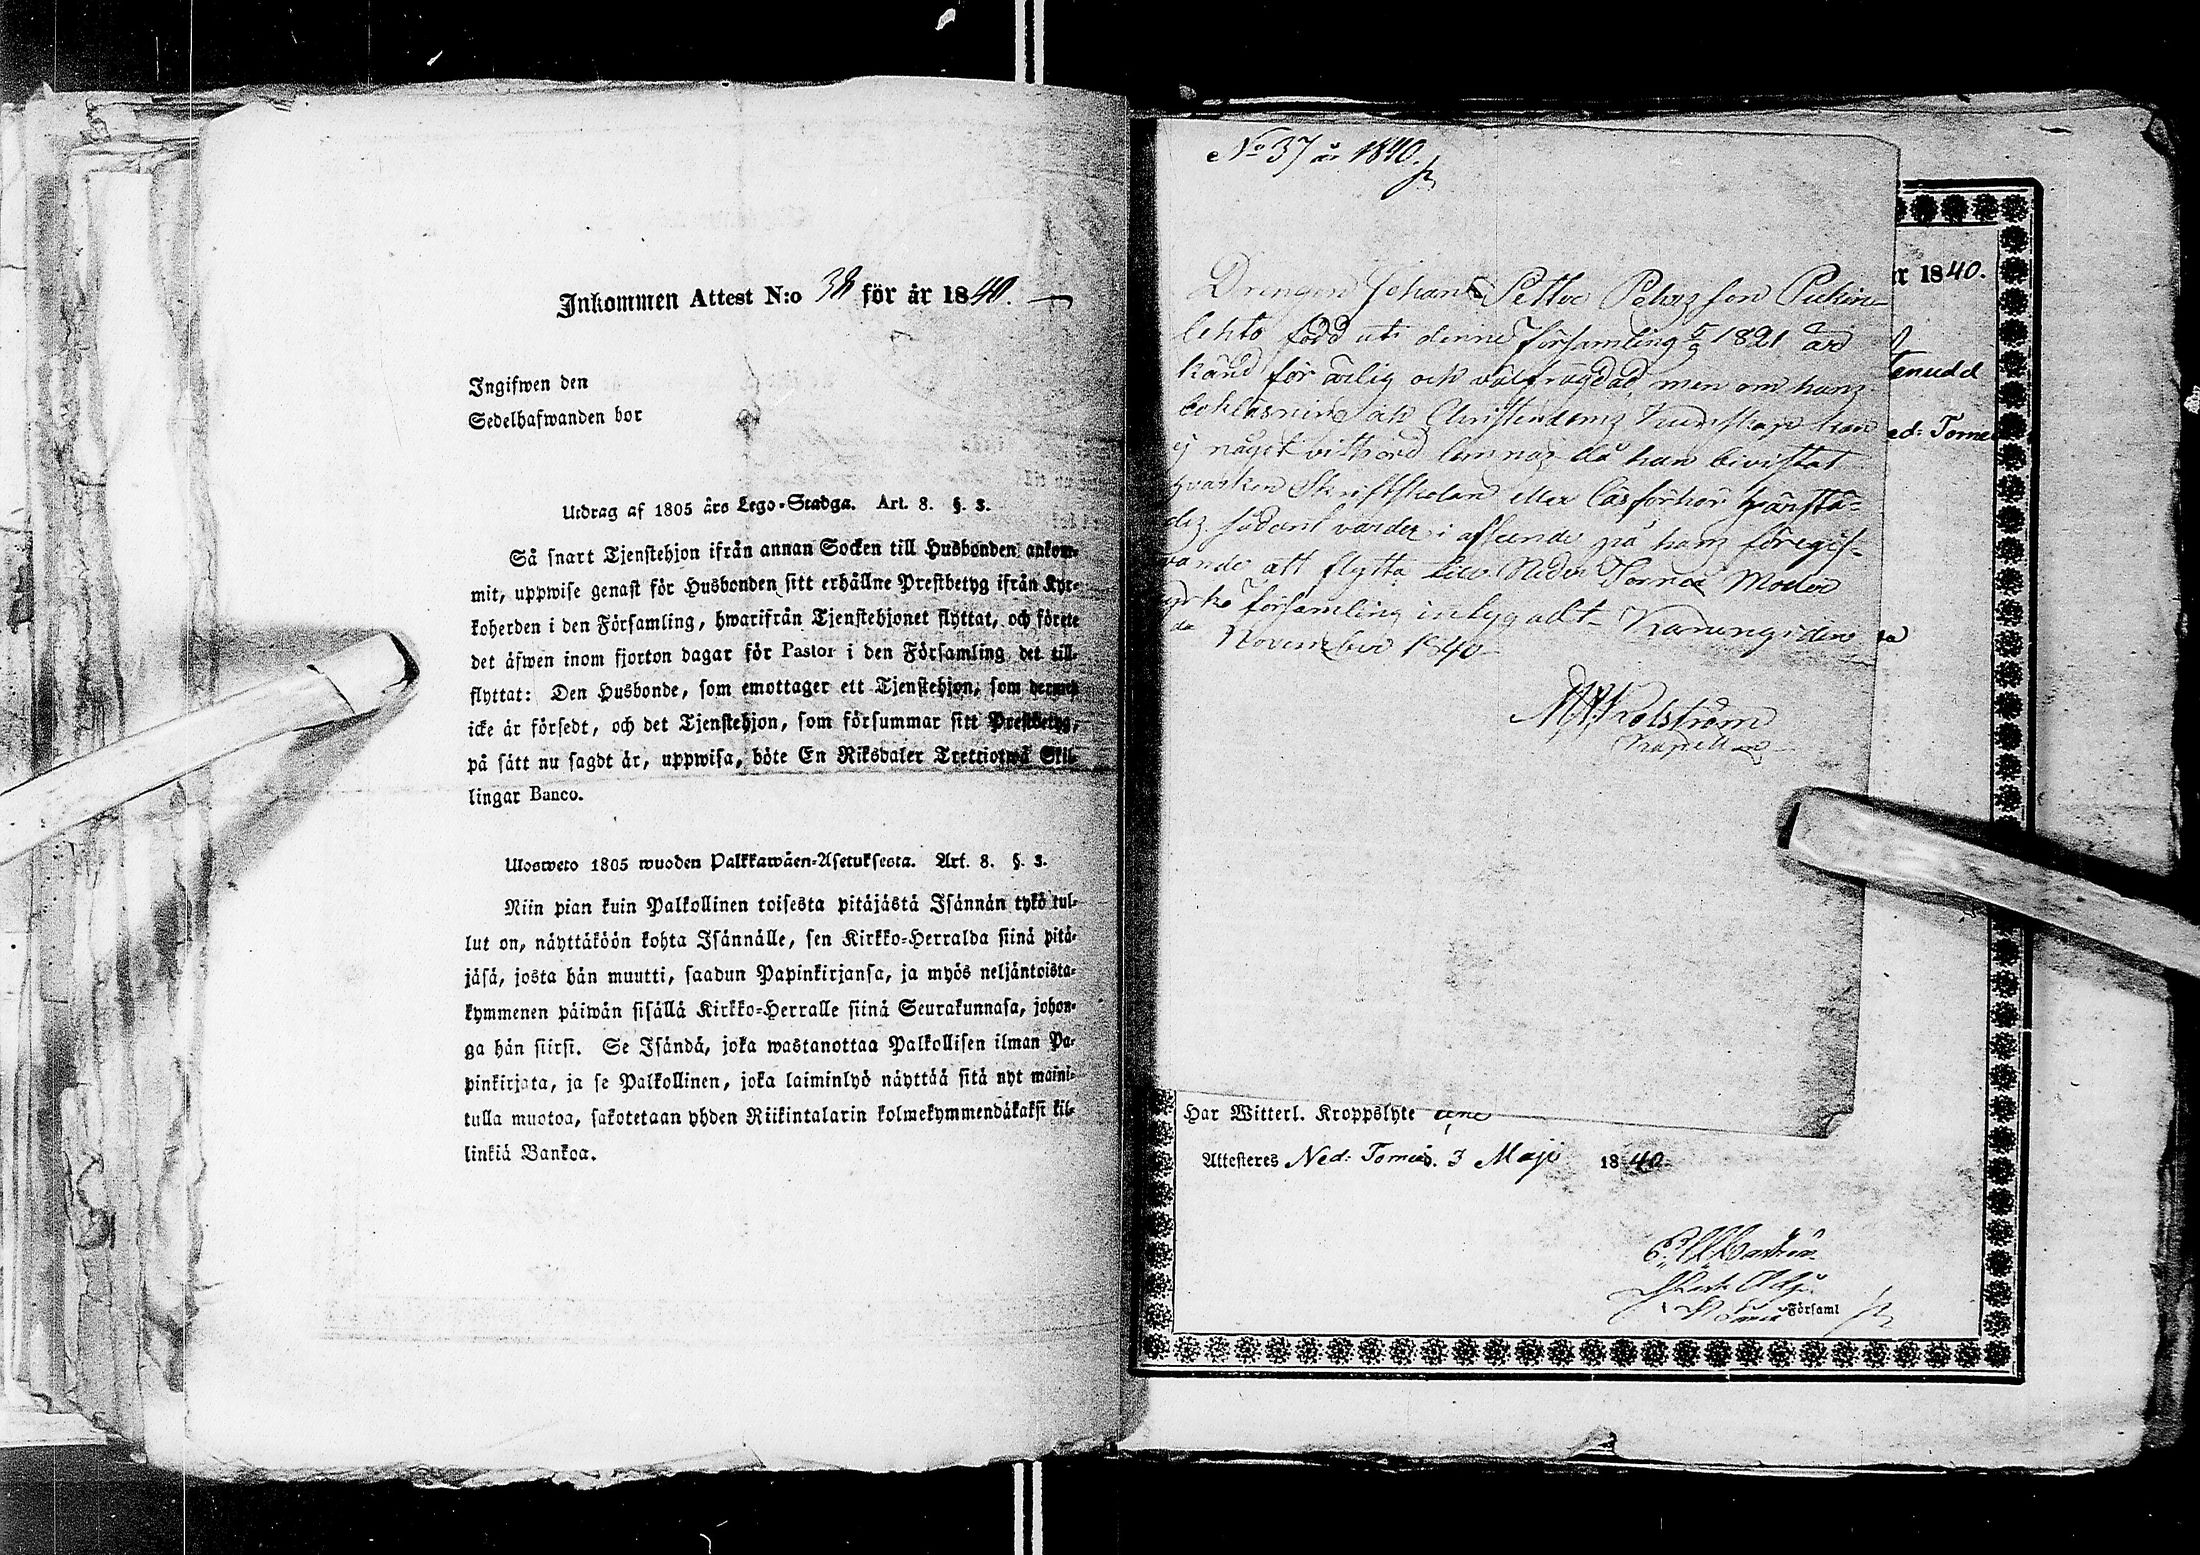 Inkommen Attest N:o 38 för år 1840.
Ingifwen den
Sedelhafwanden bor
Utdrag af 1805 års Lego-Stadga. Art. 8. §. 3.
Så snart Tjenstehjon ifrån annan Socken till Husbonden ankom-
mit, uppwise genast för Husbonden sitt erhållne Prestbetyg ifrån Kyr-
koherden i den Församling, hwarifrån Tjenstehjonet flyttat, och förete
det äfwen inom fjorton dagar för Pastor i den Församling det till-
flyttat: Den Husbonde, som emottager ett Tjenstehjon, som dermed
icke är försedt, och det Tjenstehjon, som försummar sitt Prestbetyg,
på sätt nu sagdt är, uppwisa, böte En Riksdaler Trettiotwå Skil-
lingar Banco.
Ulosweto 1805 wuoden Palkkawäen-Asetuksesta. Art. 8. §. 3.
Niin pian kuin Palkollinen toisesta pitäjästä Isännän tykö tul-
lut on, näyttäköön kohta Isännälle, sen Kirkko-Herralda siinä pitä-
jäsä, josta hän muutti, saadun Papinkirjansa, ja myös neljäntoista-
kymmenen päiwän sisällä Kirkko-Herralle siinä Seurakunnasa, johon-
ga hän siirsi. Se Isändä, joka wastanottaa Palkollisen ilman Pa-
pinkirjata, ja se Palkollinen, joka laiminlyö näyttää sitä nyt maini-
tulla muotoa, sakotetaan yhden Riikintalarin kolmekymmendäkaksi kil-
linkiä Bankoa.
No 37 år 1840.
Drengen Johan Petter Pehrsson Pukin-
lehto född uti denne församling 5/9 1821 är
känd för ärlig och välfrägdad, men om hans
bokläsning och Christendoms kunskap kan
ej något vittsord lemnas då han bivistat
hvarken Skriftskolan eller läsförhör
sådant varder i afseende på hans föregif-
vande att flytta till Neder Torneå Moder
kyrko församling intygadt. Karungi den
November 1840
Kapellan
r 1840.
enudd
ed: Torneå
Har Witterl. Kroppslyte
Attesteres Ned: Torneå d. 3 Maji 1840.
i N Torneå Församl